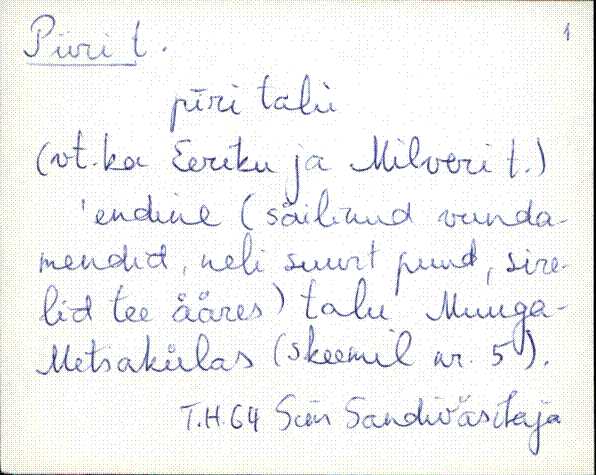 Piiri t. 1
pīri talu
(vt. ka Eeriku ja Milveri t.)
'endine (säilinud vunda-
mendid, neli suurt puud, sire-
lid tee ääres) talu Muuga-
Metsakülas (skeemil nr. 5).
T.H.64 Siiri Sandiväsitaja